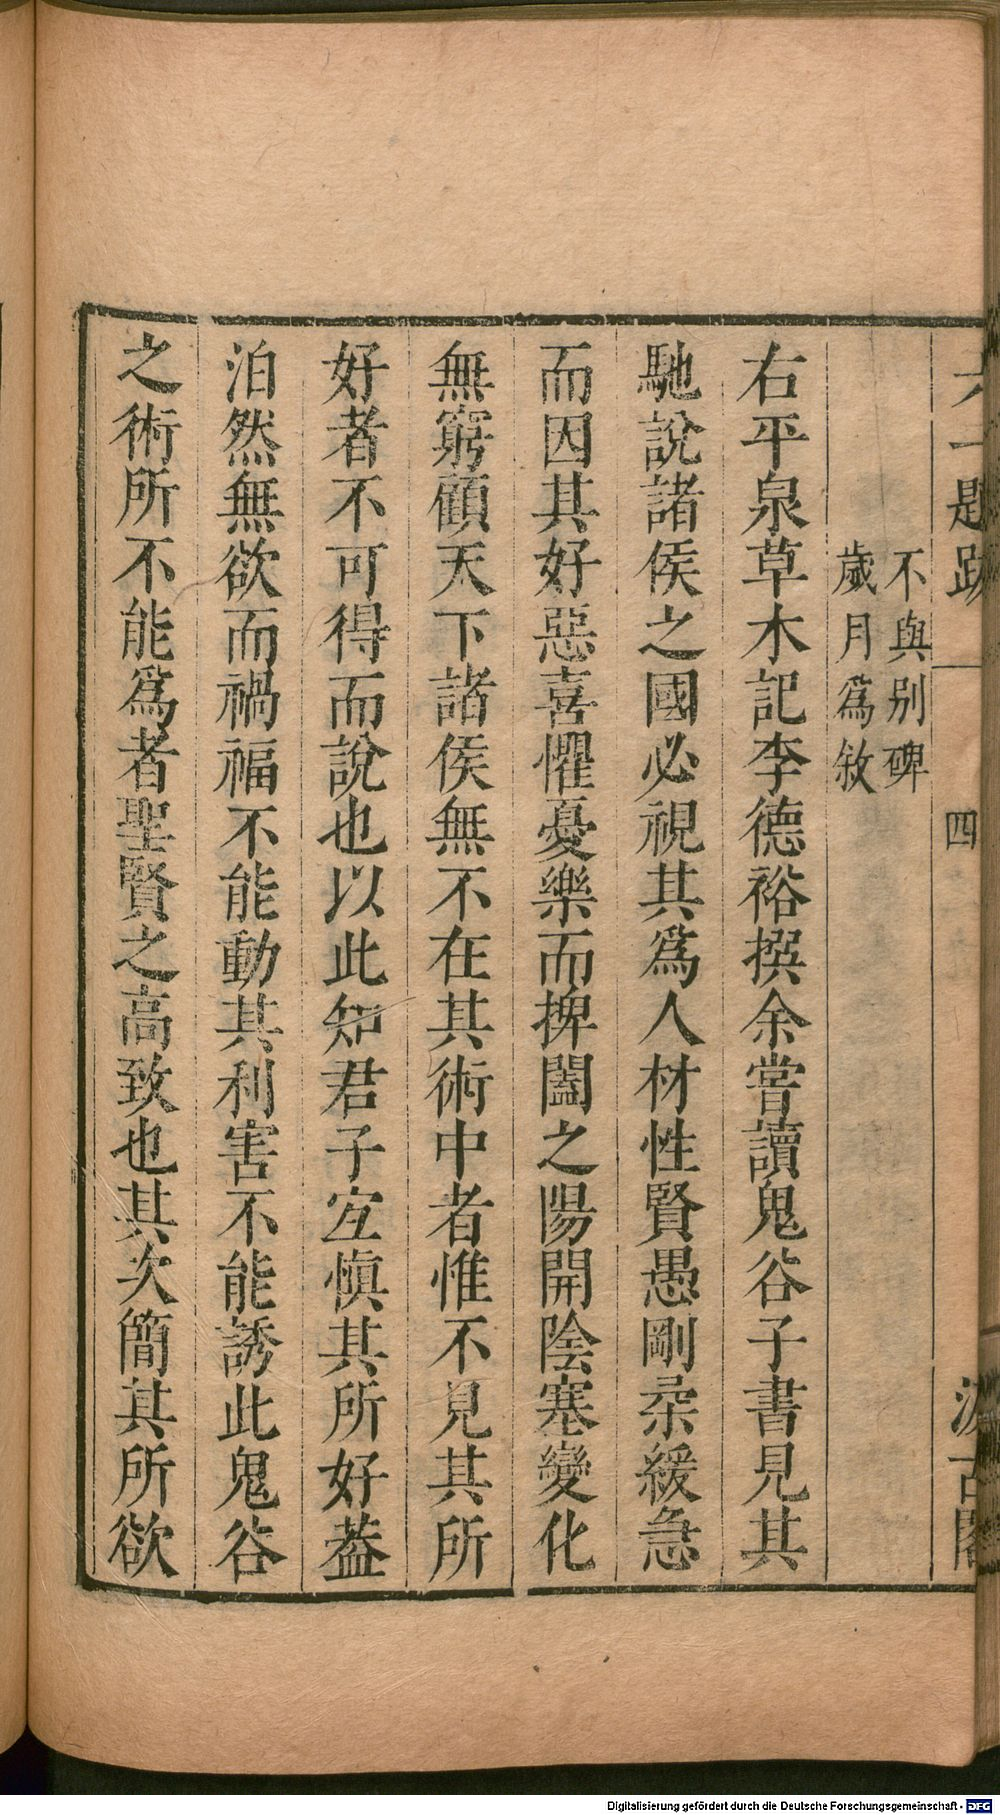 六一題跋 四 汲古閣
不與别碑
歲月爲敘
右平泉草木記李德裕撰余嘗讀鬼谷子書見其
馳說諸侯之國必視其爲人材性賢愚剛柔緩急
而因其好惡喜懼憂樂而捭闔之陽開陰塞變化
無窮顧天下諸侯無不在其術中者惟不見其所
好者不可得而說也以此知君子宜愼其所好葢
泊然無欲而禍福不能動其利害不能誘此鬼谷
之術所不能爲者聖賢之高致也其次簡其所欲
Digitalisierung gefördert durch die Deutsche Forschungsgemeinschaft - DFG